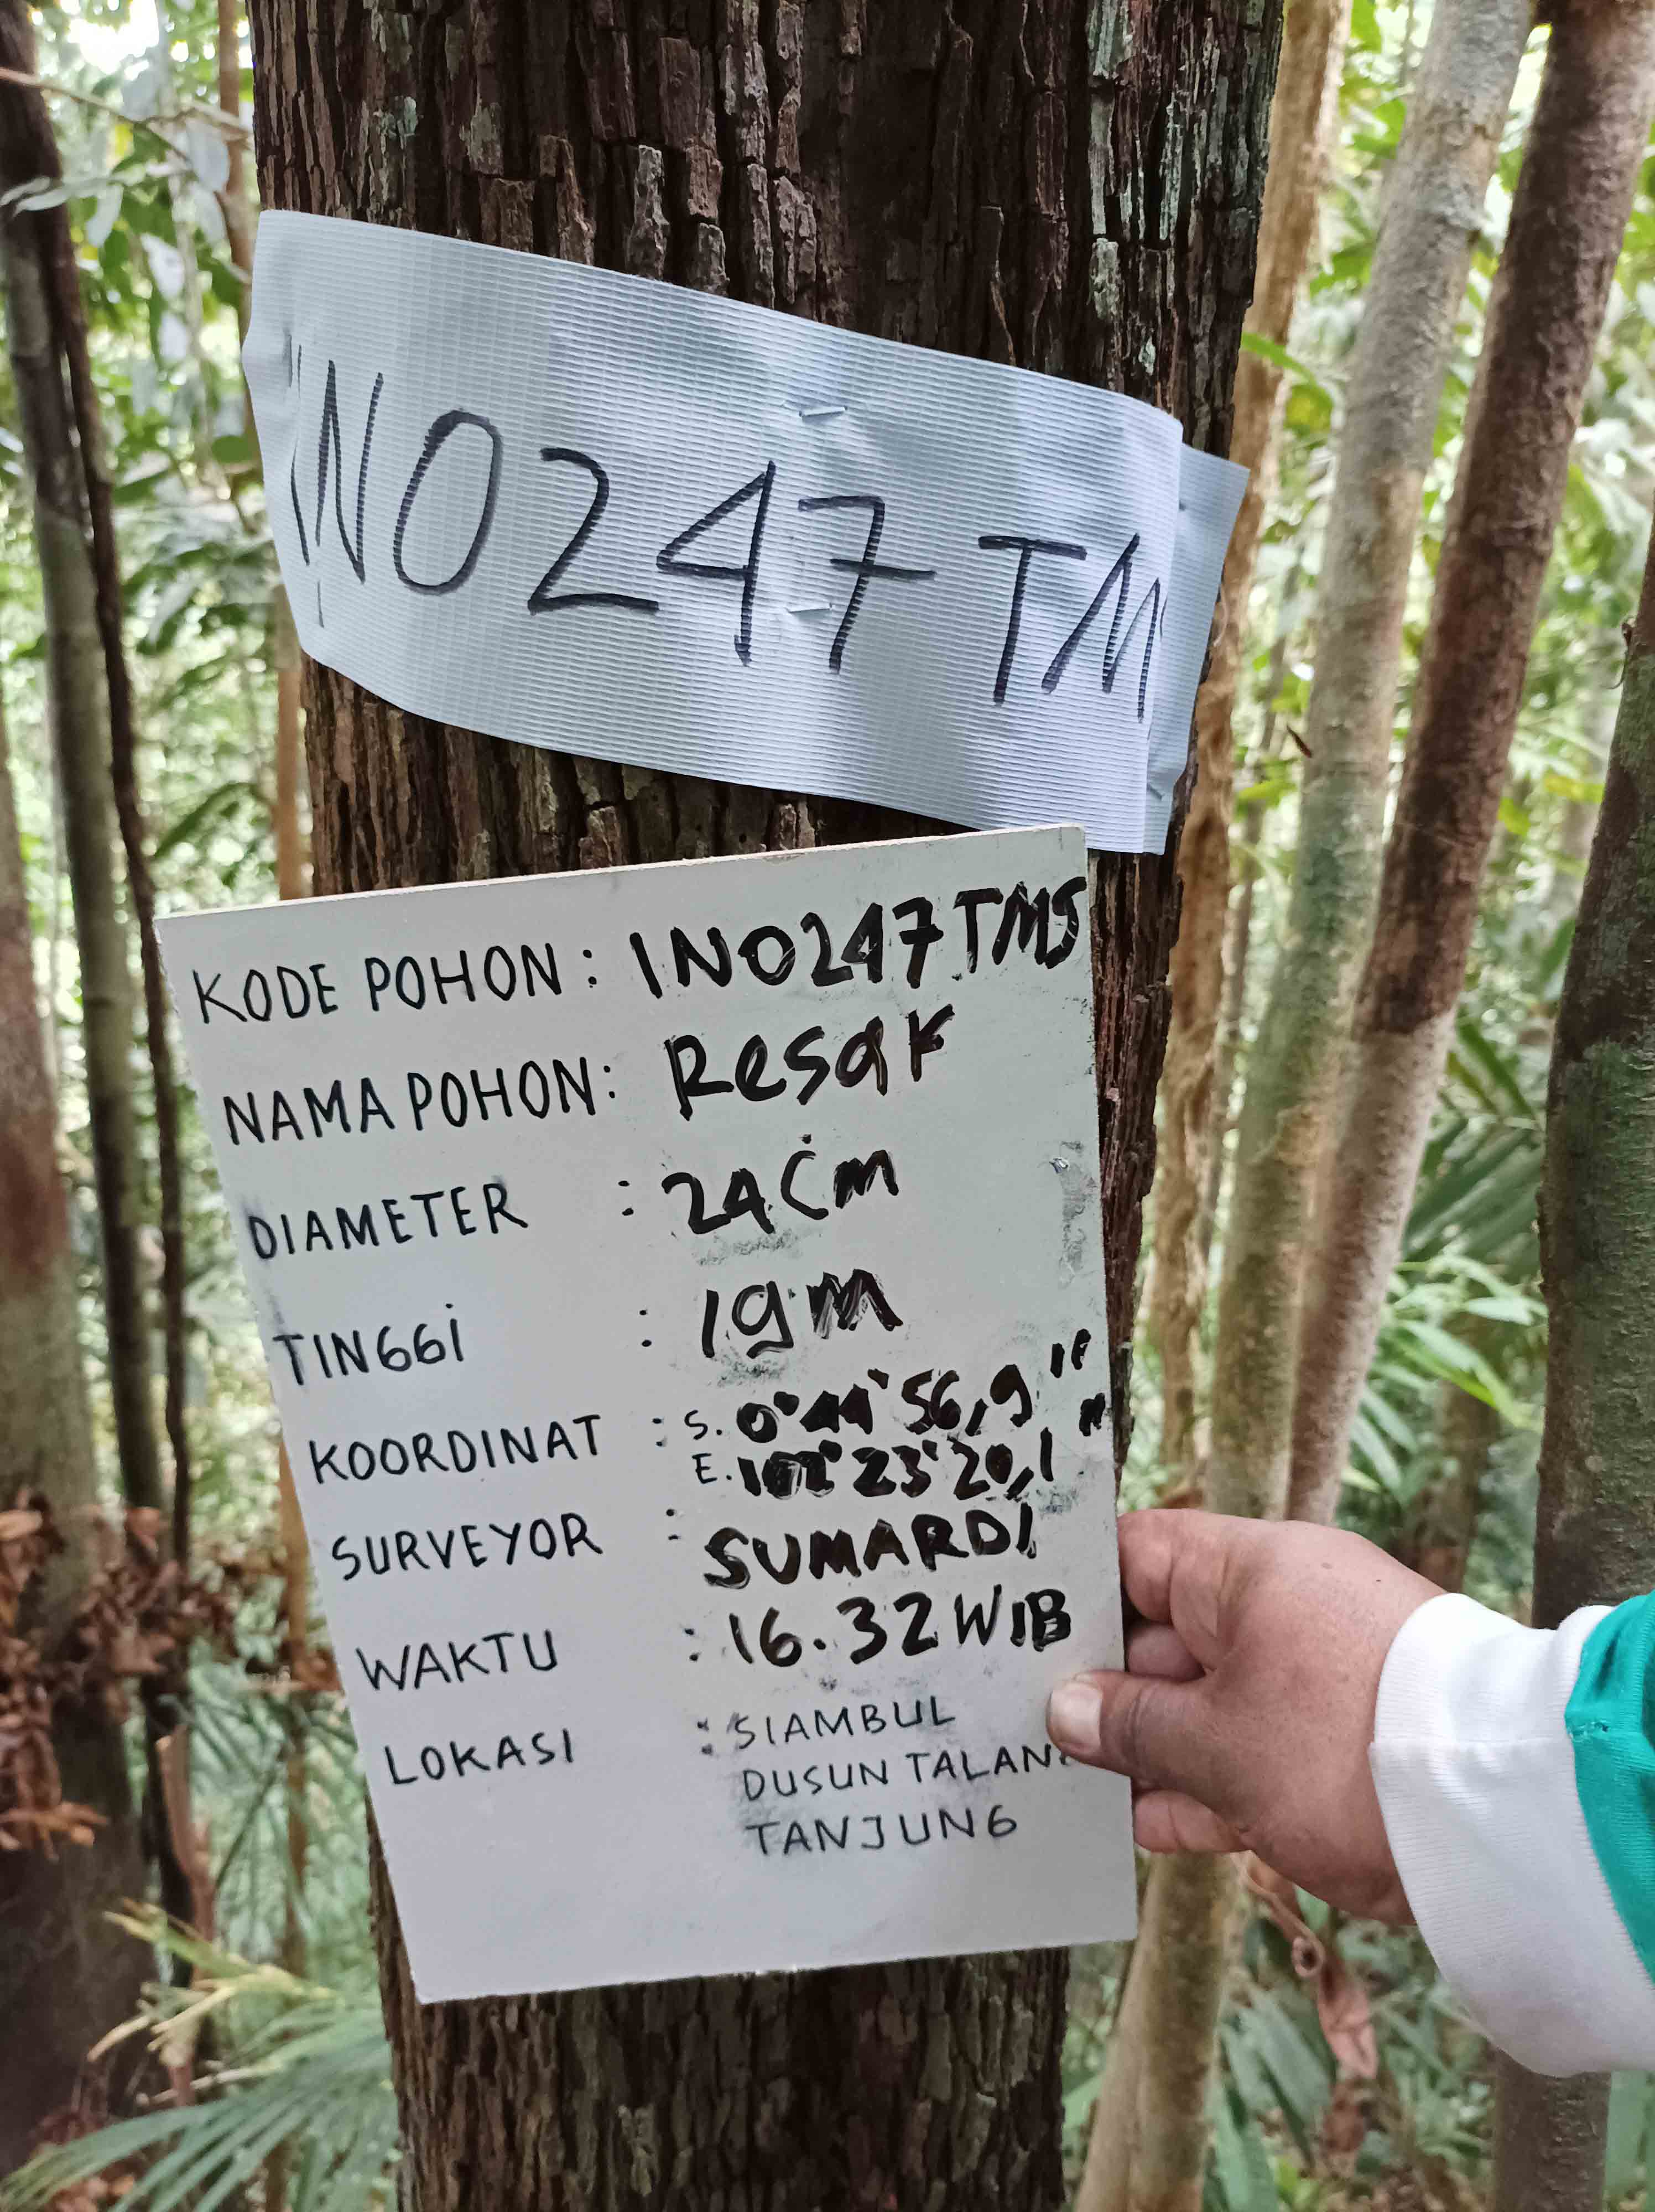 INO247 TM
KODE POHON : INO247TMS
NAMA POHON : Resak
DIAMETER : 24 Cm
TINGGI : 19 M
KOORDINAT : S. 0°44'56,9"
E. 102°23'20,1"
SURVEYOR : SUMARDI
WAKTU : 16.32 WIB
LOKASI : SIAMBUL
DUSUN TALANG
TANJUNG